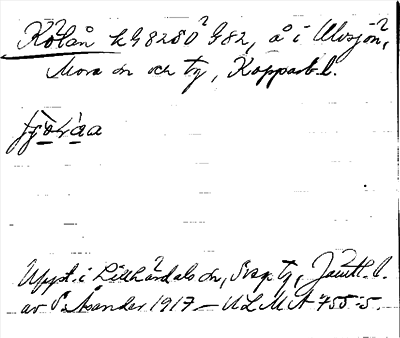 Kölån kG8280 G82, å i Ulvsjön,
Mora sn och tg, Kopparb.l.
Uppt. i Lillhärdals sn, Sveg tg, Jämtl. l.
av P. Åsander 1917 — ULMA 755:5.